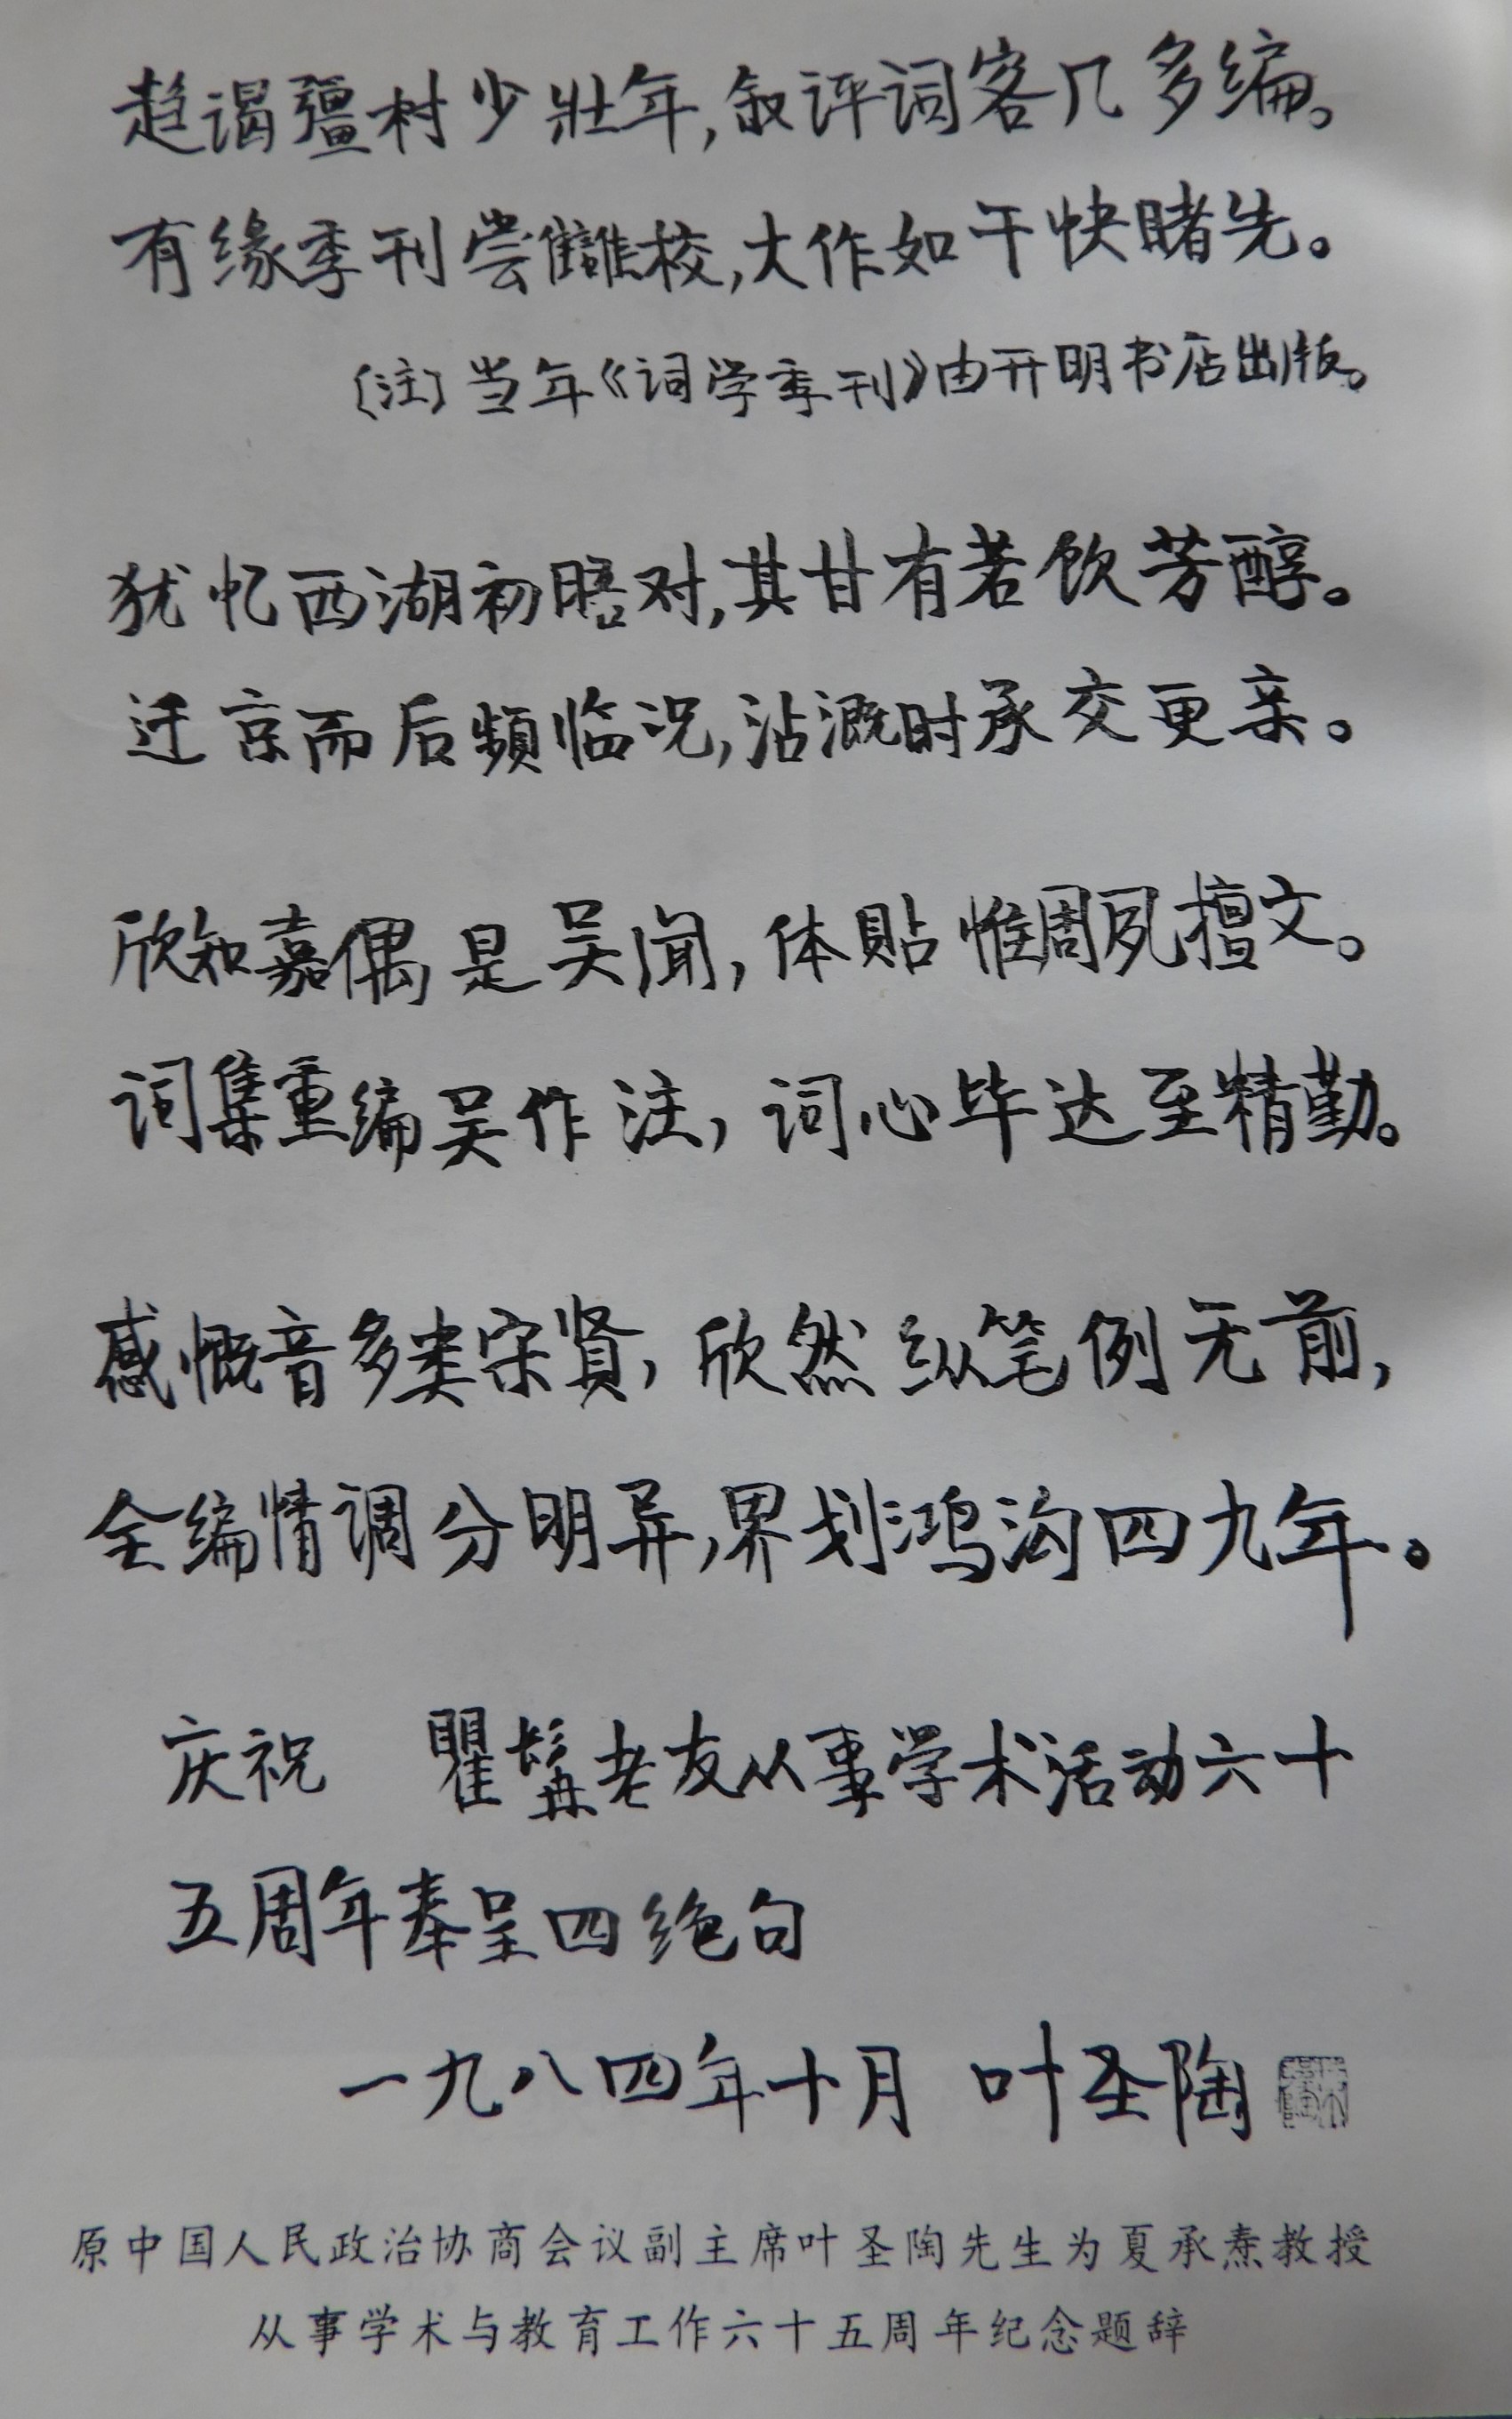 趋谒彊村少壮年,叙评词客几多编。
有缘季刊尝雠校,大作如干快睹先。
〔注〕当年《词学季刊》由开明书店出版。
犹忆西湖初晤对,其甘有若饮芳醇。
迁京而后频临况,沾溉时承交更亲。
欣知嘉偶是吴闻,体贴惟周夙擅文。
词集重编吴作注,词心毕达至精勤。
感慨音多类宋贤,欣然纵笔例无前,
全编情调分明异,界划鸿沟四九年。
庆祝 瞿髯老友从事学术活动六十
五周年奉呈四绝句
一九八四年十月 叶圣陶
原中国人民政治协商会议副主席叶圣陶先生为夏承焘教授
从事学术与教育工作六十五周年纪念题辞